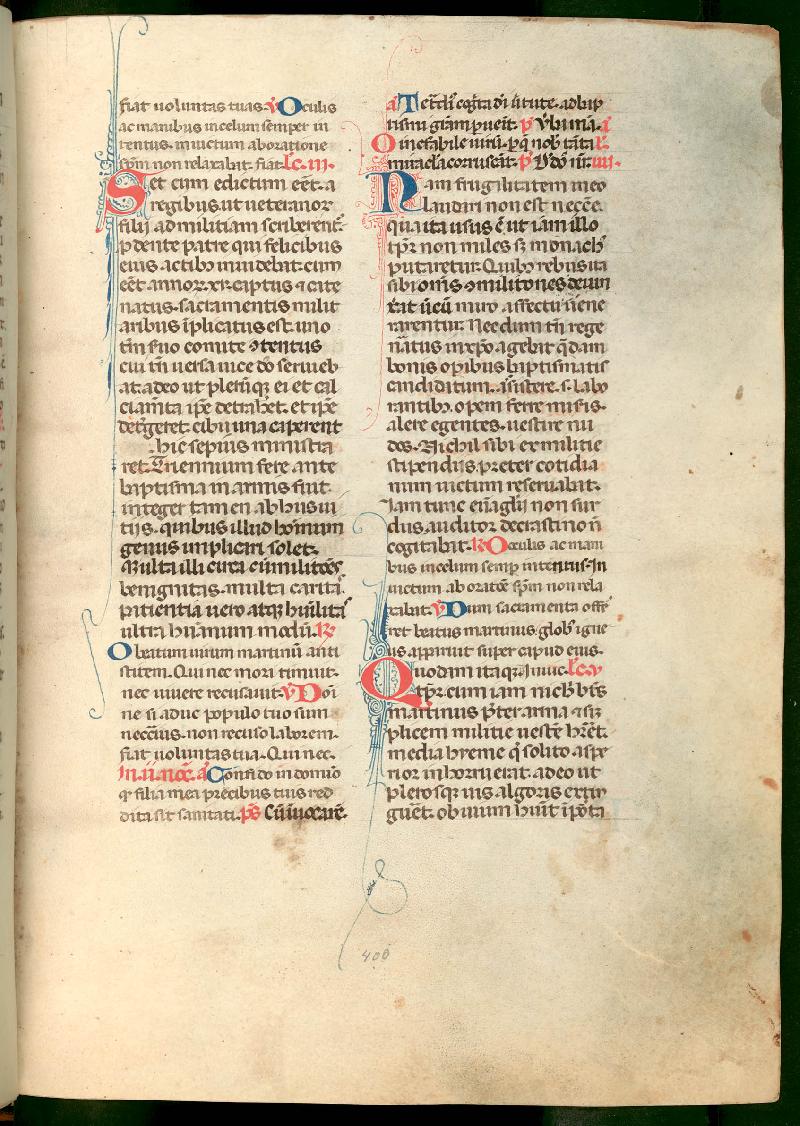 fiat uoluntas tuas. V Oculis
ac manibus in celum semper in
tentus. inuictum ab oratione
spm non relaxabit. fiat. lc. iii.
Set cum edictum eet. a
regibus. ut ueteranor
filii ad militiam scriberent.
pdente patre qui felicibus
eius actibꝫ inuidebat. cum
eet annoꝝ. xv. captus ⁊ cate
natus. sacramentis milit
aribus īplicatus est. uno
tm̄ suo comite ꝯtentus
cui tn̄ uersa uice do seruieb
at. adeo ut plerūqꝫ ei et cal
ciam̄ta ipe detrahet. et ipe
det'geret. cibū una caperent
. hic sepius ministra
ret. Triennium fere ante
baptisma in armis fuit.
integer tamen ab hiis ui
tiis. quibus illud hominum
genus implicari solet.
Multa illi circa cūmilitōes
benignitas. multa carita.
patientia uero atqꝫ humilita
ultra humanum modū. R
O beatum uirum martinū anti
stitem. Qui nec mori timuit.
nec uiuere recusauit. V Domi
ne si aduc populo tuo sum
necc̄ius. non recuso laborem.
fiat uoluntas tua. Qui nec.
In. ii. noc̄. a Confido in domino
qr filia mea precibus tuis red
dita sit sanitati. ps Cū inuocarē.
a Tetdi cogita di uirtute. ad bap
tismi gram puenit. p Vba mā. a
O inefabile uirū. p quē nob tāta
miracla coruscant. p Vdō nr. iiii.
Nam frugilitatem meo
laudari non est necce.
qua ita usus ē ut iam illo
tpr non miles sꝫ monachꝰ
putaretur. Quibꝫ rebus ita
sibi omīs ꝯmilitones deuin
xat ut eū miro affectu uene
rarentur. Necdum tn̄ rege
natus in xp̄o agebat qdam
bonis opibus baptismatis
candidatum. assistere. s. labo
rantibꝫ. opem ferre misis.
alere egentes. uestire nu
dos. Nichil sibi ex militie
stipendiis. preter cotidia
num uictum reseruabat.
Iam tunc euaglii non sur
dus auditor de crastino n̄
cogitabat. R Oculis ac mani
bus in celum semp intentus. In
uictum ab oratōe spm non rela
xabat. V Dum sacramenta offer
ret beatus martinus. globꝰ igne
us apparuit super capud eius.
Quodam itaqꝫ Inuic. lc. v
tpr. cum iam nichil btis
martinus pter arma ⁊ sim
plicem militie ueste haret.
media hyeme q solito aspe
rior inhorruerat. adeo ut
plerosqꝫ uis algoris extin
gueret. obuium huit ī pōta
400